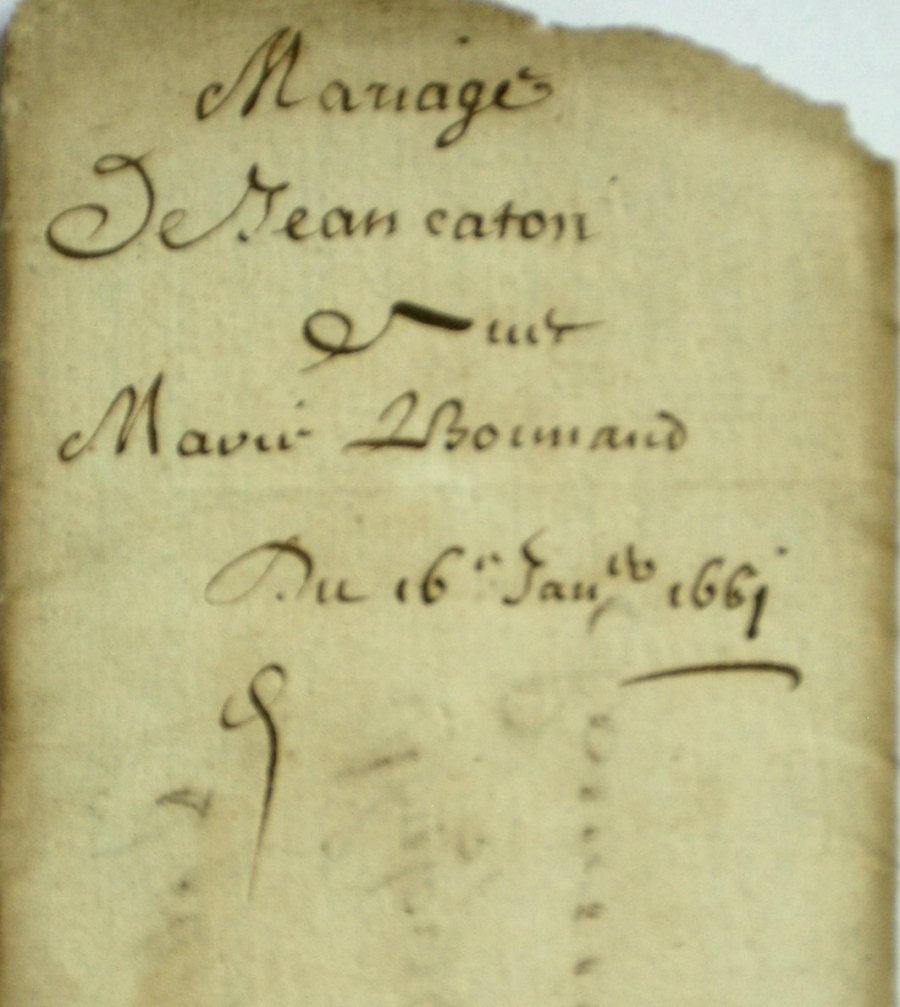 Mariage
De Jean caton
Et
Marie Bonnaud
Du 16e Janer 1661